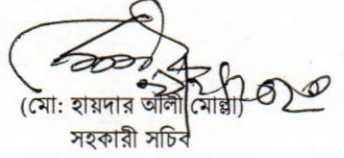 (মো: হায়দার আলী মোল্লা)
সহকারী সচিব